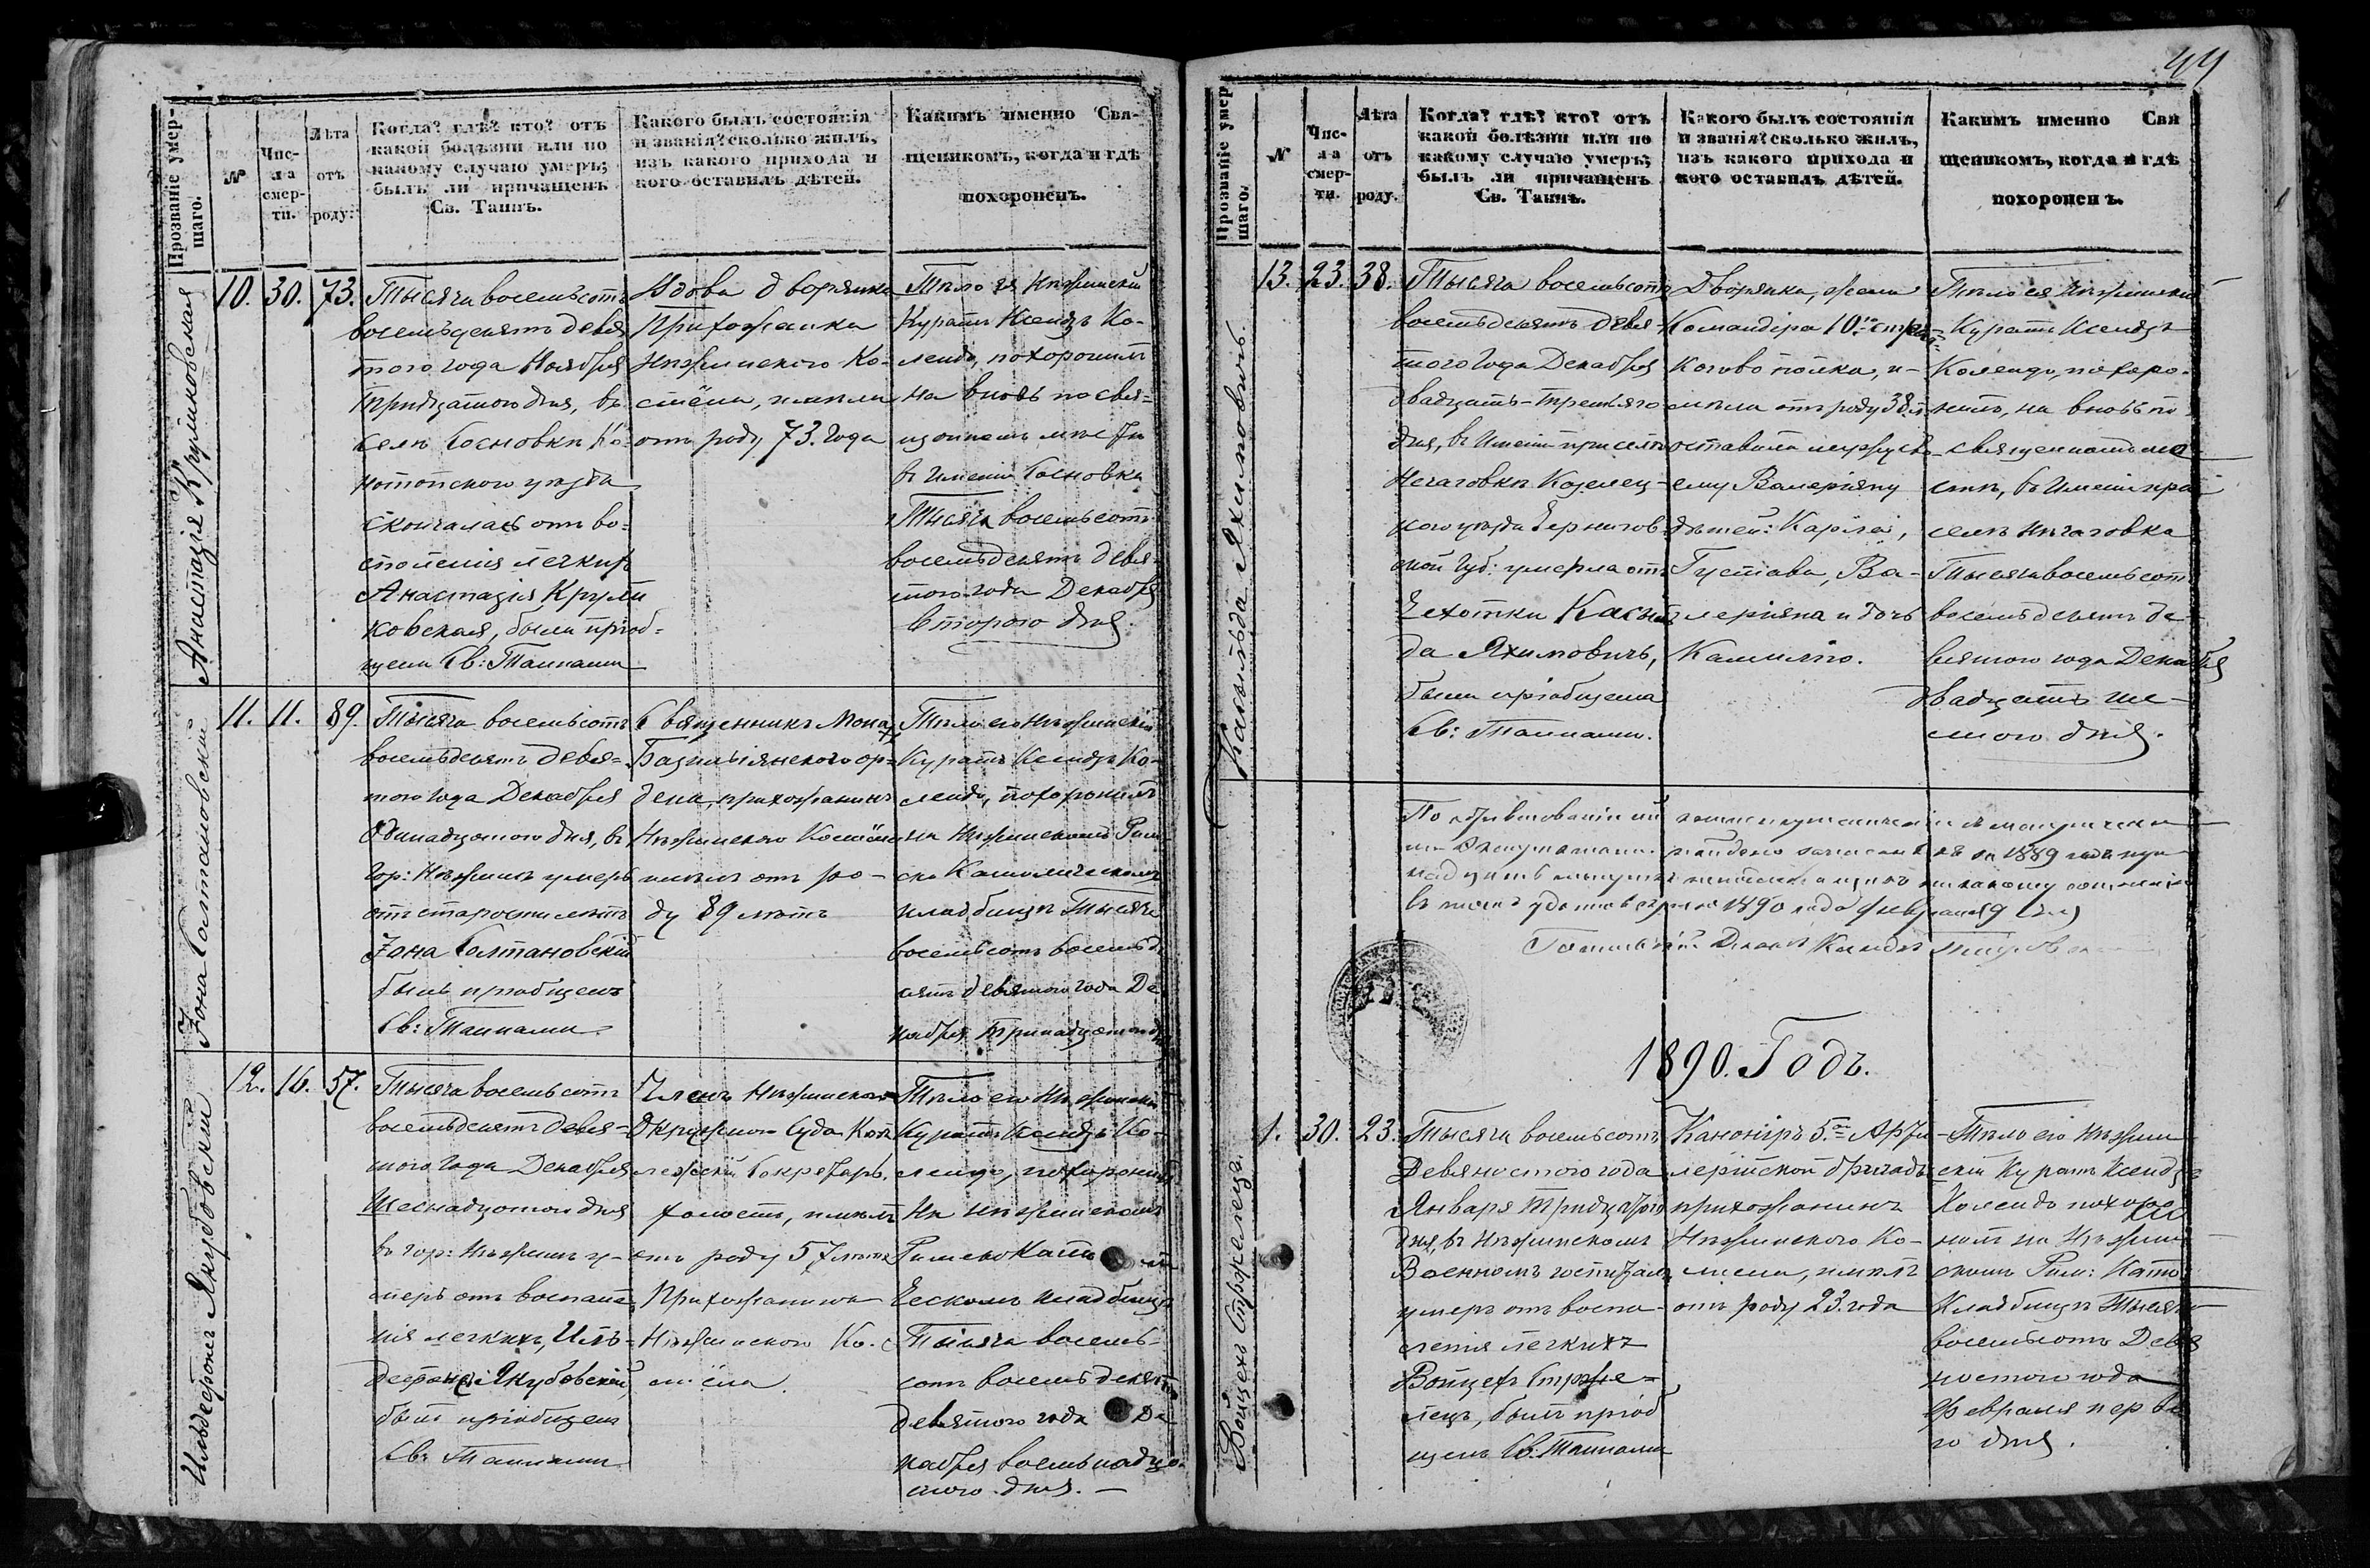 44
Прозваніе умер-
шаго.
№
Чис-
ла
смер-
ти.
Лѣта
отъ
роду.
Когда? гдѣ? кто? отъ
какой болѣзни или по
какому случаю умеръ;
былъ ли причащенъ
Св. Таинъ.
Какого былъ состоянія
и званія? сколько жилъ,
изъ какого прихода и
кого оставилъ дѣтей.
Какимъ именно Свя-
щеникомъ, когда и гдѣ
похороненъ.
Анастазія Крупиковская
10. 30. 73.
Тысяча восемьсотъ
восемьдесятъ девя
того года Ноября
тридцатого дня, въ
селѣ Сосновки Ко-
нотопского уѣзда
скончалась отъ во-
спаленія легкихъ
Анастазія Крупи
ковская, была пріоб-
щена Св: Тайнами
Вдова дворянка
Прихожанка
Нѣжинского Ко-
стёла, имѣла
отъ роду 73. года
Тѣло ея Нѣжинскій
Куратъ Ксендзъ Ко-
лендо, похоронилъ
на вновь посвя-
щонномъ мѣстѣ
въ имѣніи Сосновка
Тысяча восемьсотъ
восемьдесятъ девя-
того года Декабря
второго дня.
Іона Солтановскій
11. 11. 89.
Тысяча восемьсотъ
восемьдесятъ девя-
того года Декабря
Одинадцатого дня, въ
гор: Нѣжинѣ умеръ
отъ старости лѣтъ
Іона Солтановскій
былъ пріобщенъ
Св: Тайнами.
Священникъ Монах
Базиліянского ор-
дена, прихожанинъ
Нѣжинского Костёла
имѣлъ отъ ро-
ду 89 лѣтъ
Тѣло его Нѣжинскій
Куратъ Ксендзъ Ко-
лендо, похоронилъ
на Нѣжинскомъ Рим
ско Католическомъ
кладбищѣ Тысяча
восемьсотъ восемьде
сятъ девятого года Де
кабря тринадцатого дня
Ильдефонсъ Якубовскій
12. 16. 57.
Тысяча восемьсотъ
восемьдесятъ девя-
того года Декабря
Шеснадцатого дня
въ гор: Нѣжинѣ у-
меръ отъ воспале
нія легкихъ, Иль-
дефонсъ Якубовскій
былъ пріобщенъ
Св: Тайнами
Членъ Нѣжинского
Окружного Суда Кол
лежскій Секретарь,
холостъ, имѣлъ
отъ роду 57 лѣтъ
Прихожанинъ
Нѣжинского Ко-
стёла.
Тѣло его Нѣжинскій
Куратъ Ксендзъ Ко-
лендо, похоронилъ
На Нѣжинскомъ
Римско Като
ческомъ кладбищѣ
Тысяча восемь-
сотъ восемьдесятъ
девятого года Де
кабря восемьнадца-
того дня.
Прозваніе умер
шаго.
№
Чис-
ла
смер-
ти.
Лѣта
отъ
роду.
Когда? гдѣ? кто? отъ
какой болѣзни или по
какому случаю умеръ;
былъ ли причащенъ
Св. Таинъ.
Какого былъ состоянія
и званія? сколько жилъ,
изъ какого прихода и
кого оставилъ дѣтей.
Какимъ именно Свя
щеникомъ, когда и гдѣ
похороненъ.
Казимѣра Яхимовичъ.
13. 23. 38.
Тысяча восемьсотъ
восемьдесятъ девя-
того года Декабря
двадцать-третьяго
дня, въ имѣніи при селѣ
Нечаговкѣ Козелец-
кого уѣзда Чернигов
ской Губ: умерла отъ
чехотки
да Яхимовичъ,
была пріобщена
Св: Тайнами.
Дворянка, жена
Командіра 10го стрѣл
коваго полка, и-
мѣла отъ роду 38 л
оставила мужу св
ему Валеріяну
дѣтей: Кароля,
Густава, Ва-
леріяна и дочь
Камилю.
Тѣло ея Нѣжинскій
Куратъ Ксендзъ
Колендо, похоро-
нилъ, на вновь по
священномъ мѣ
стѣ, въ имѣніи при
селѣ Нечаговка
Тысяча восемьсотъ
восемьдесятъ де
вятого года Декабря
двадцать ше-
стого дня.
1890. Годъ.
Войцехъ Стржелецъ.
1. 30. 23.
Тысяча восемьсотъ
Девяностого года
Января Тридцатого
дня, въ Нѣжинскомъ
Военномъ госпиталѣ
умеръ отъ воспа-
ленія легкихъ
Войцехъ Стрже-
лецъ, былъ пріоб
щенъ Св: Тайнами
Каноніръ 5.ой Арти
лерійской бригады
прихожанинъ
Нѣжинского Ко-
стела, имѣлъ
отъ роду 23. года
Тѣло его Нѣжин
скій Куратъ Ксендзъ
Колендо похоро
нилъ на Нѣжин
скомъ Рим: Като
Кладбищѣ Тысяча
восемьсотъ Девя
ностого года
Февраля перва
го дня.